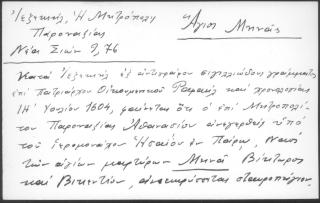 Ἡ Μητρόπολις
Παροναξίας
Ἅγιος Μηνᾶς
Νέα Σιών 9, 76
Κατὰ ἐξ ἀντιγράφου σιγιλλιώδους γράμματος
ἐπὶ πατριάρχου Οἰκουμενικοῦ Ραφαὴλ καὶ χρονολογίας
ΙΗ' Ἰουλίου 1604, φαίνεται ὅτι ὁ ἐπὶ Μητροπολί-
του Παροναξίας Ἀθανασίου ἀνεγερθεὶς ὑπὸ
τοῦ ἱερομονάχου Ἡσαΐου ἐν Πάρῳ, Ναὸς
τῶν ἁγίων μαρτύρων Μηνᾶ Βίκτωρος
καὶ Βικεντίου, ἀνεκηρύσσεται σταυροπήγιον.